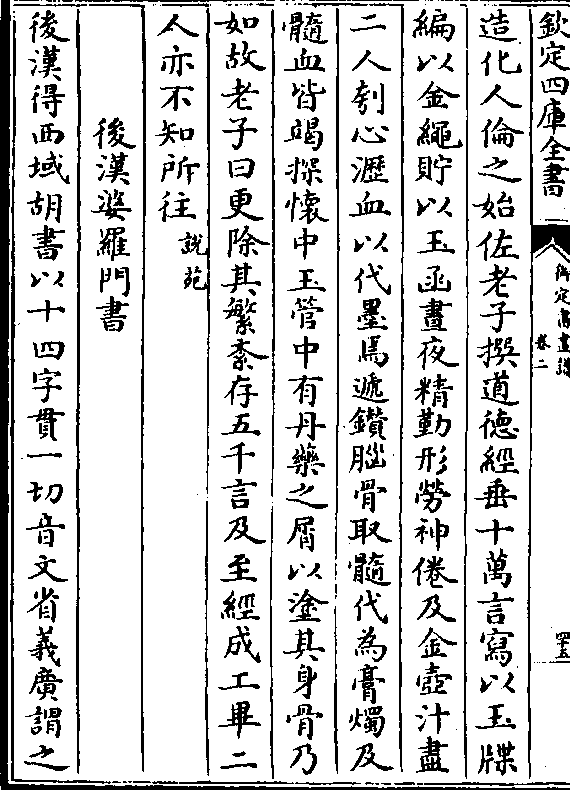 欽定四庫全書
御定書畫譜
卷二
四十五
造化人倫之始佐老子撰道德經垂十萬言寫以玉牒
編以金繩貯以玉函晝夜精勤形勞神倦及金壺汁盡
二人刳心瀝血以代墨焉遞鑽腦骨取髓代為膏燭及
髓血皆竭探懷中玉管中有丹藥之屑以塗其身骨乃
如故老子曰更除其繁紊存五千言及至經成工畢二
人亦不知所往說苑
後漢婆羅門書
後漢得西域胡書以十四字貫一切音文省義廣謂之